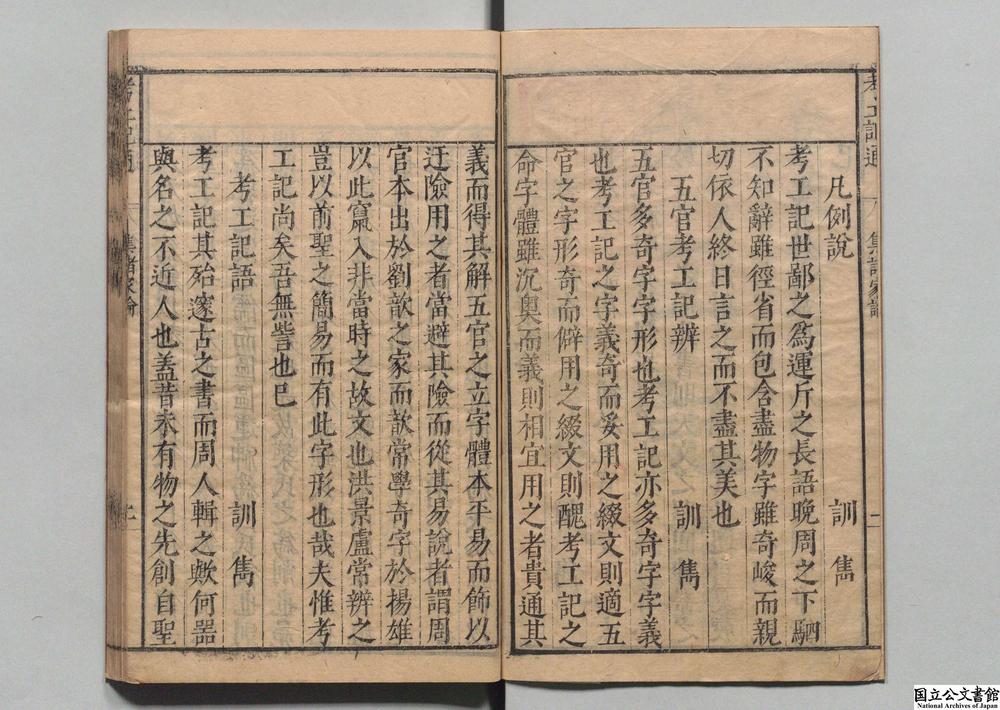 凡例說　訓雋
考工記世鄙之為運斤之長語晚周之下駟
不知辭雖徑省而包含盡物字雖奇峻而親
切依人終日言之而不盡其美也
五官考工記辨　訓雋
五官多奇字字形也考工記亦多奇字字義
也考工記之字義奇而妥用之綴文則適五
官之字形奇而僻用之綴文則醜考工記之
命字體雖沉奥而義則相宜用之者貴通其
義而得其解五官之立字體本平易而飾以
迂險用之者當避其險而從其易說者謂周
官本出於劉歆之家而歆常學奇字於揚雄
以此竄入非當時之故文也洪景盧常辨之
豈以前聖之簡易而有此字形也哉夫惟考
工記尚矣吾無訾也巳
考工記語　訓雋
考工記其殆邃古之書而周人輯之歟何器
與名之不近人也盖昔未有物之先創自聖
考工記通
集諸家論
国立公文書館
National Archives of Japan